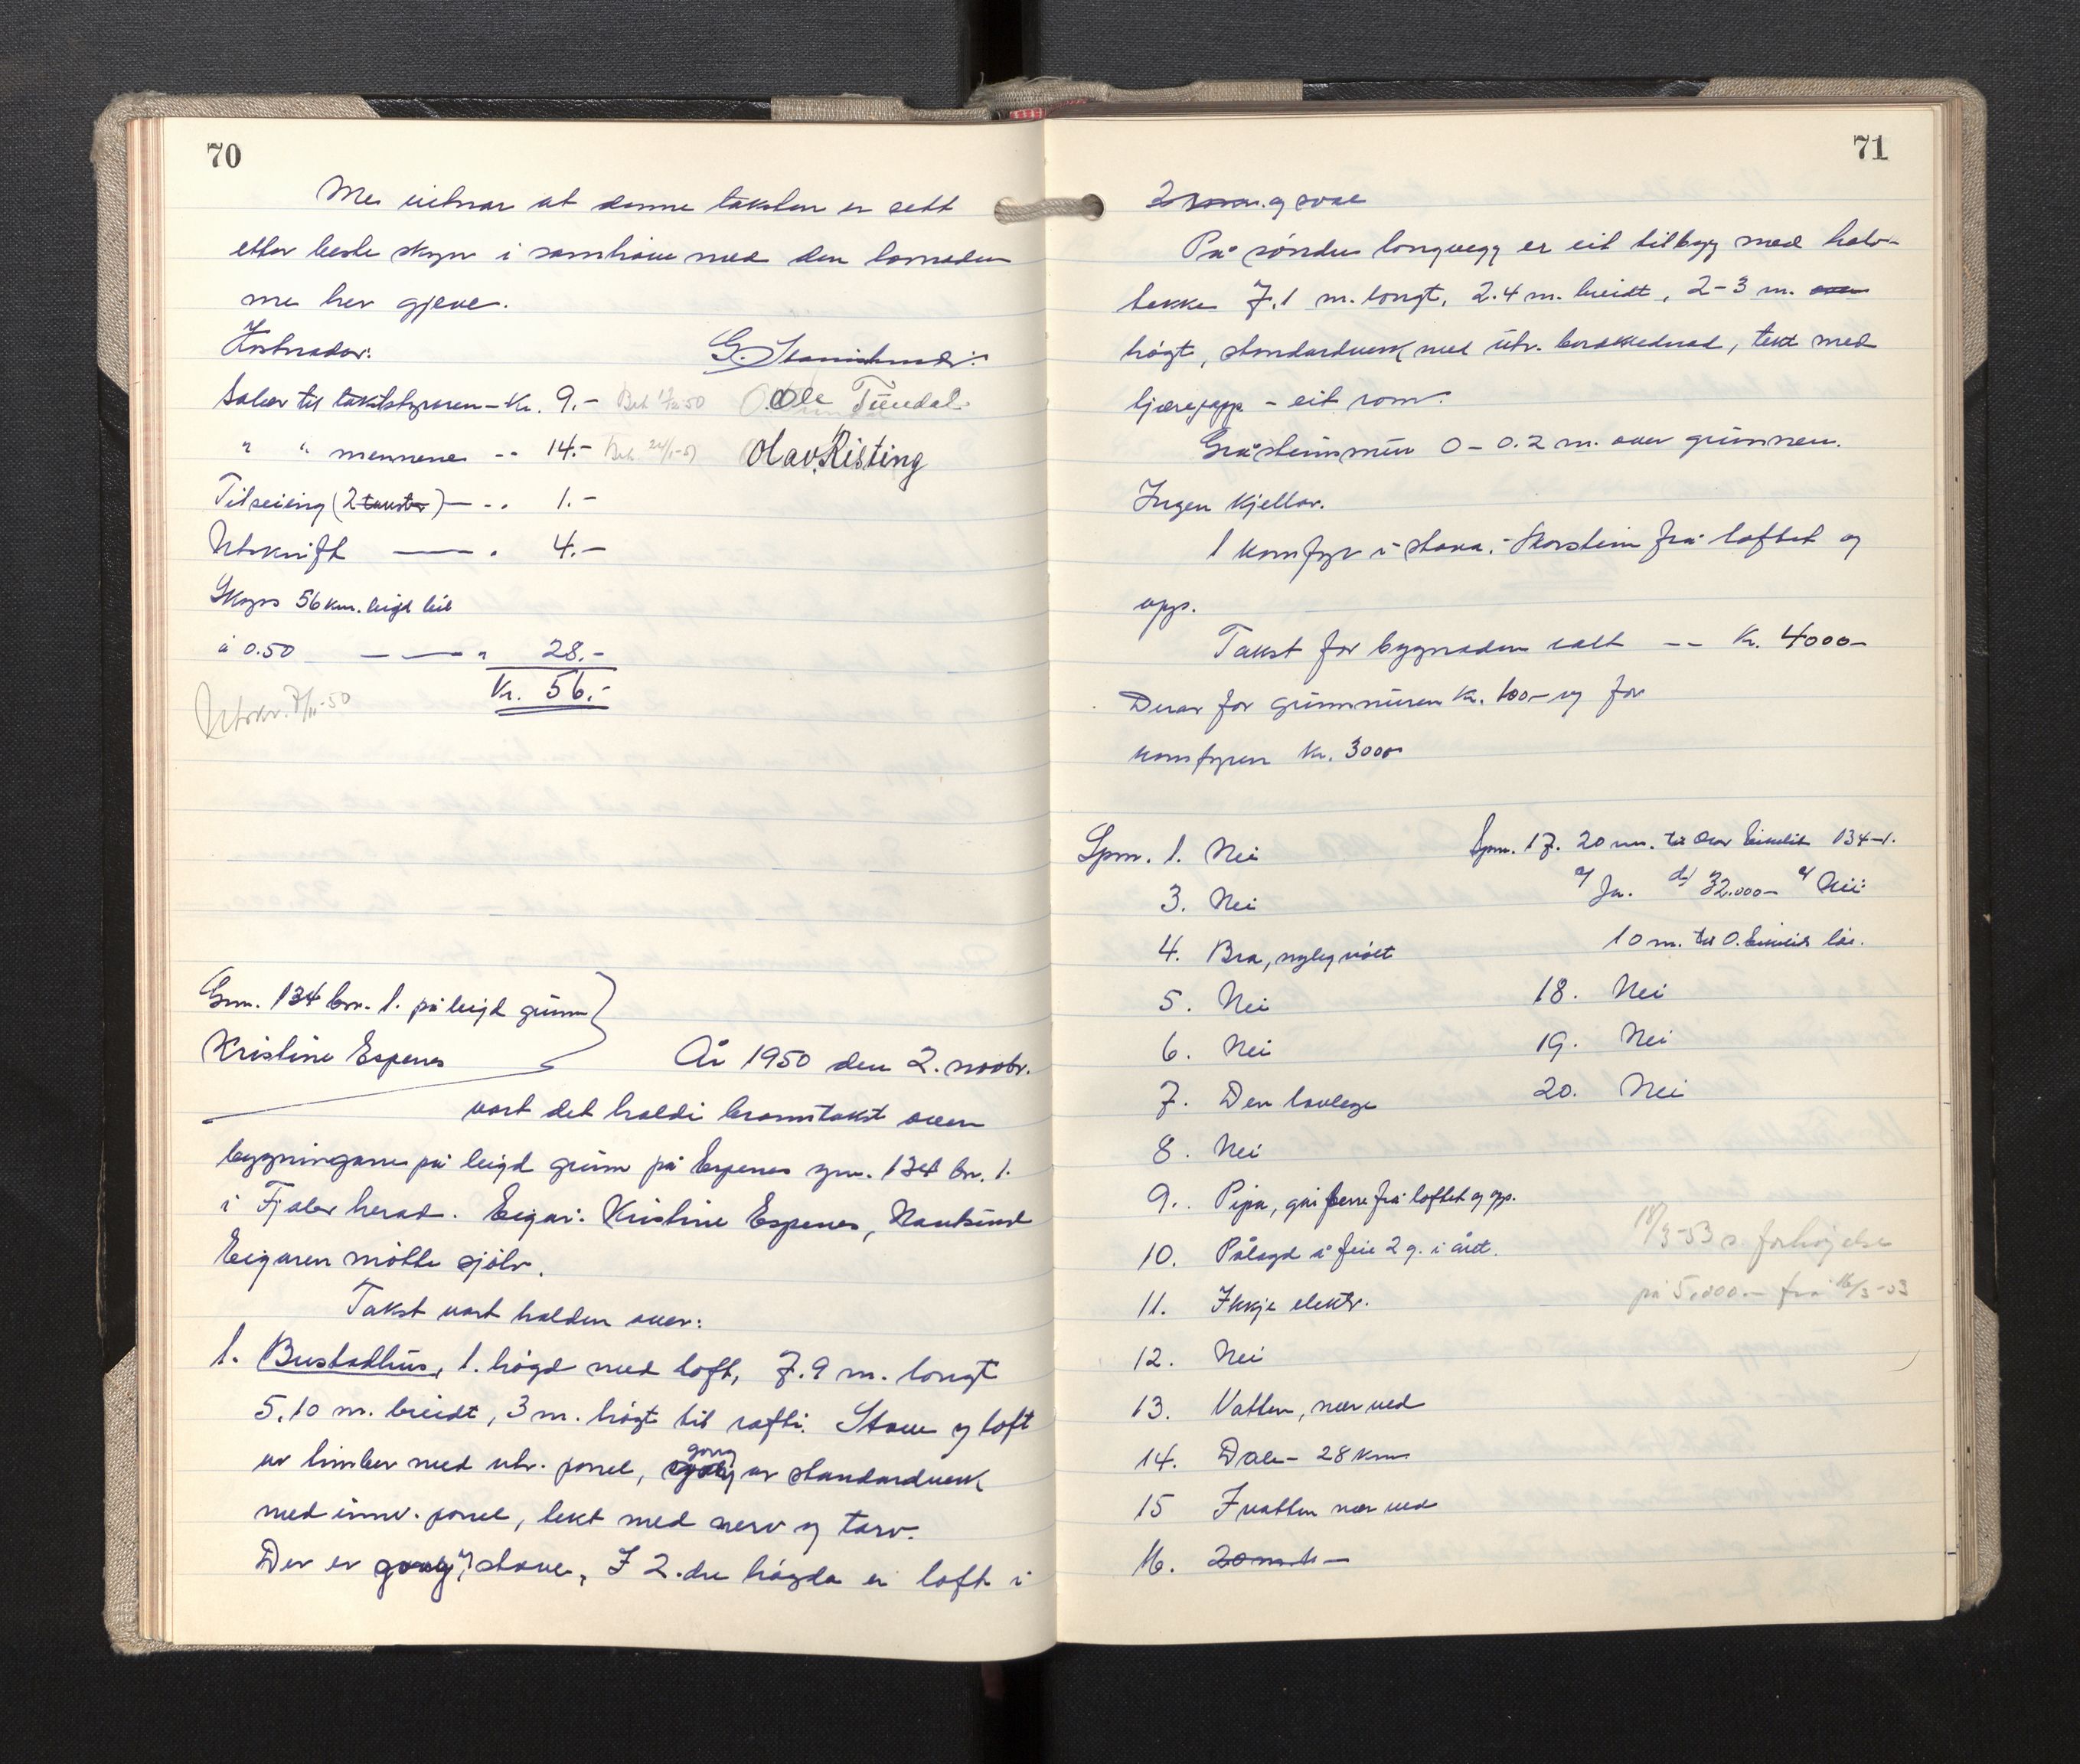 70
Me vitnar at denne taksten er sett
etter beste skyn i samhøve med den lovnaden
me her gjeve.
Kostnader:
Salær til takstskyraren - Kr. 9.-
Ole Tundal
" " mennene -- 14.-
Olav Risting
Tilseiing (2 takster) - - . 1.-
Utskrift - . 4.-
Skyss 56 km. leigd bil
à 0.50 - - " 28.-
Kr. 56.-
Utskr. 7/11-50
Gnr. 134 bnr. 1. på leigd grunn
Kristine Espenes
År 1950 den 2. novbr.
vart det haldi branntakst over
bygningane på leigd grunn på Espenes gnr. 134 bnr. 1.
i Fjaler herad. Eigar: Kristine Espenes,
Eigaren møtte sjølv.
Takst vart halden over:
1. Bustadhus, 1. høgd med loft, 7.9 m. langt
5.10 m. breidt, 3 m. høgt til raft. Stove og loft
av timber med utv. panel, gang av standardverk
med innv. panel, tekt med nerv og torv.
Der er gang og stove, I 2. dre høgda er loft i
71
2 rom og sval
På søndre langvegg er eit tilbygg med halv-
tekke 7.1 m. langt, 2.4 m. breidt, 2-3 m.
høgt, standardverk med utv. bordklednad, tekt med
tjærepapp - eit rom.
Gråsteinsmur 0-0.2 m. over grunnen.
Ingen kjellar.
1 komfyr i stova. Skorstein frå loftet og
opp.
Takst for bygnaden ialt -- Kr. 4000-
Derav for grunnmuren Kr. 100- og for
komfyren Kr. 300-
Spm. 1. Nei
3. Nei
4. Bra, nyleg vølt
5. Nei
6. Nei
7. Den lovlege
8. Nei
9. Pipa, går berre frå loftet og opp.
10. Pålagd å feie 2 g. i året.
11. Ikkje elektr.
12. Nei
13. Vatten, nær ved
14. Dale - 28 km
15 I vatten nær ved
16. 20 m. ti -
Spm. 17. 20 m. til 134-1.
Ja. d) 32.000- e) Nei
10 m. til O.
18. Nei
19. Nei
20. Nei
18/3-53 s. forhøjelse
på 5.000.- frå 16/3-53